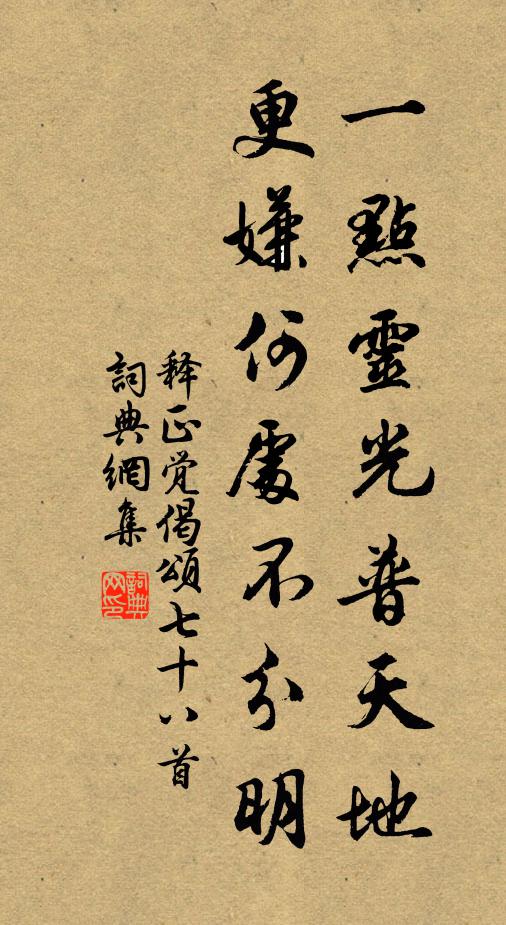 一點靈光普天地
更嫌何處不分明
释正觉偈頌七十八首
詞典網集
詞典网印